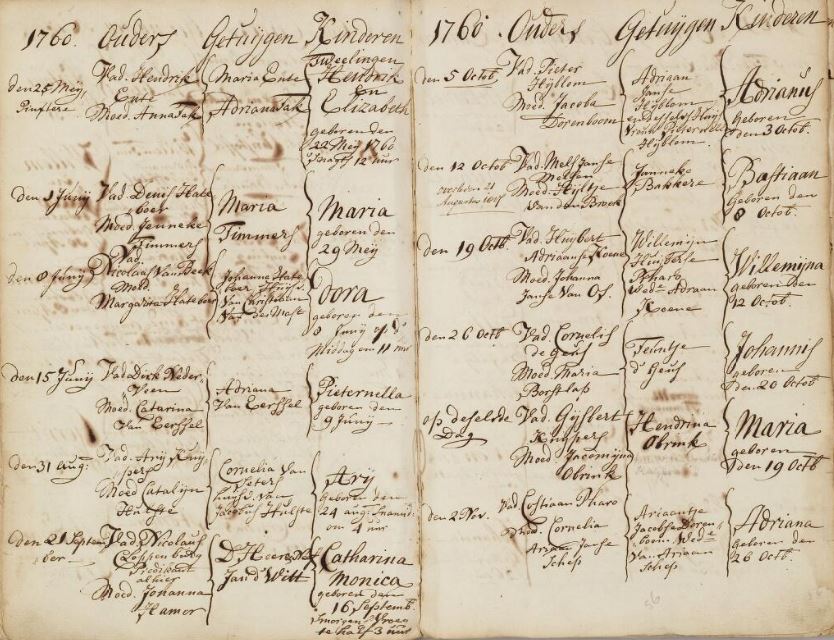 1760. Ouders Getuijgen Kinderen
den 25 Meij,
Vad. Hendrik
Ente
Moed. Anna Tak
Maria Ente
Adriana Tak
Tweelingen
Hendrik
en
Elizabeth
geboren den
22 Meij 1760
12 uur
den 1 Junij
Vad. Denis Hate
boer
Moed. Janneke
Timmers
Maria
Timmers
Maria
geboren den
29 Meij
den 8 Junij
Vad.
Nicolaas Van Beek
Moed.
Margareta Hateboer
Johanna Hate
boer
Van Christiaan
Van der Mast
Dora
geboren den
8 Junij
Middag om 11 uur
den 15 Junij
Vad. Dirk Neder
Veen
Moed. Catarina
Van Eersssel
Adriana
Van Eersssel
Pieternella
geboren den
9 Junij
den 31 aug:
Vad. Arij Kuij
pers
Moed Catalijn
Hulste
Cornelia Van
Peters
huijsv. van
Jacobus Hulste
Arij
geboren den
24 aug:
om 4 uur
den 21 Septem
ber
Vad. Nicolaus
Cloppenburg
Predikant
alhier
Moed. Johanna
Hamer
Jan d Witt
Catharina
Monica
geboren den
16 Septemb.
smorgens
te half 3 uur
1760. Ouders Getuijgen Kinderen
den 5 Octob.
Vad. Pieter
Hijblom
Moed. Jacoba
Dorenboom
Adriaan
Janse
Hijblom
en desselfs Huijs
vrouw
Hijblom.
Adrianus
Geboren
den 3 Octob.
den 12 Octob
overleden 21
Augustus
Vad. Mels Janse
Melsen
Moed. Hijltje
Van den Broek
Janneke
Bakkers
Bastiaan
Geboren den
8 Octob.
den 19 Octb.
Vad. Huijbert
Adriaanse Koene
Moed. Johanna
Janse Van Os.
Willemijna
Huijberts
Pharo
Wede Adriaan
Koene
Willemijna
Geboren den
12 Octob.
den 26 Octb
Vad. Cornelis
de Geus
Moed. Maria
Borstlap
Teuntje
d' Geus
Johannis
geboren
den 20 Octob
op deselvde
Dag
Vad. Gijsbert
Kuijpers
Moed Jacomijna
Obrink
Hendrina
Obrink
Maria
geboren
den 19 Octb
den 2 Nov.
Vad. Costiaan Pharo
Moed. Cornelia
Ariaan Janse
Scheps
Ariaantje
Jacobse Doren
boom. Wede
Van Ariaan
Scheps
Adriana
geboren den
26 Octb.